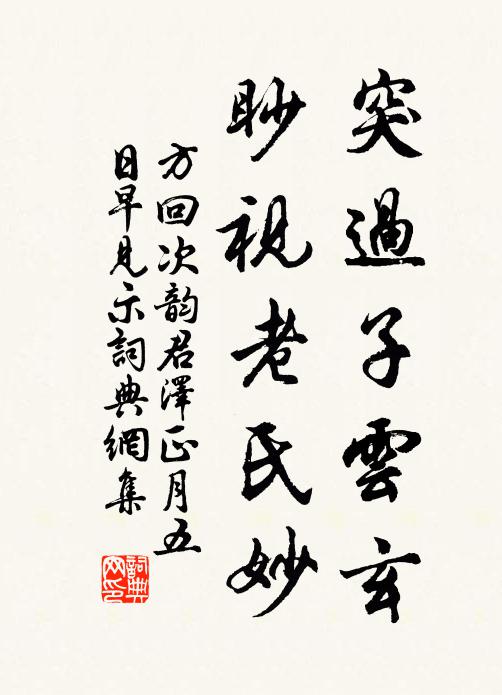 突過子雲玄
眇視老氏妙
方回次韵君澤正月五
日早見示詞典網集
詞典
网印